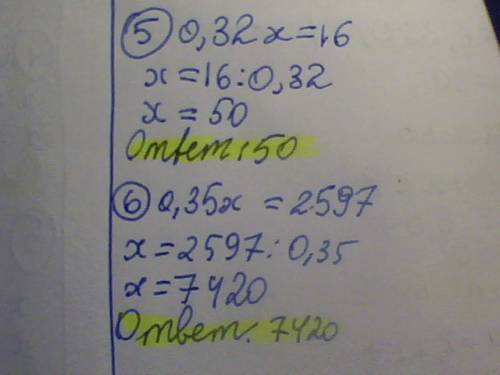 5 0,32x=16
x=16:0,32
x=50
Ответ: 50
6 0,35x=2597
x=2597:0,35
x=7420
Ответ: 7420